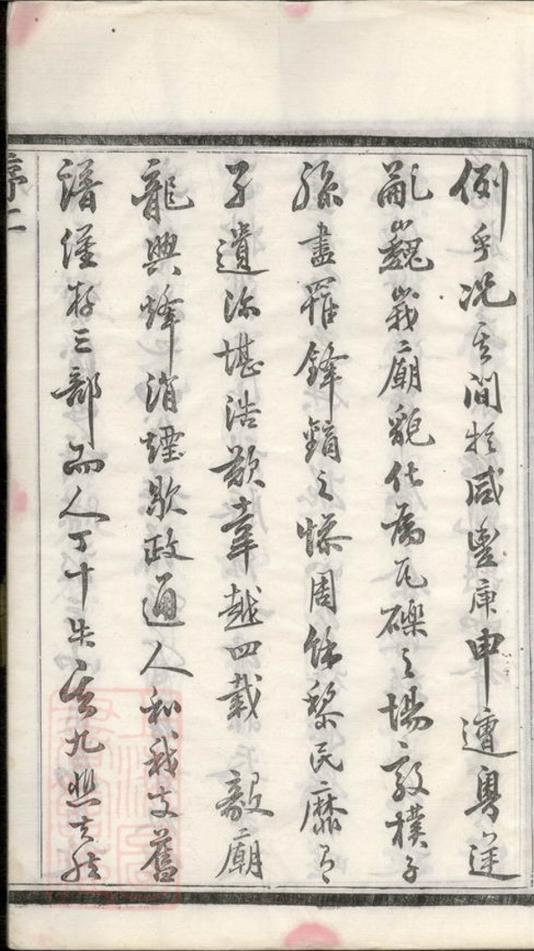 例乎況其間於咸豐庚申遭粵逆
亂巍峩廟貌化為瓦礫之場敦樸子
孫盡罹鋒鏑之慘周餘黎民靡有
孑遺深堪浩歎幸越四載 毅廟
龍興烽消煙歇政通人和我支舊
譜僅存三部而人丁十失其九興言及
序二